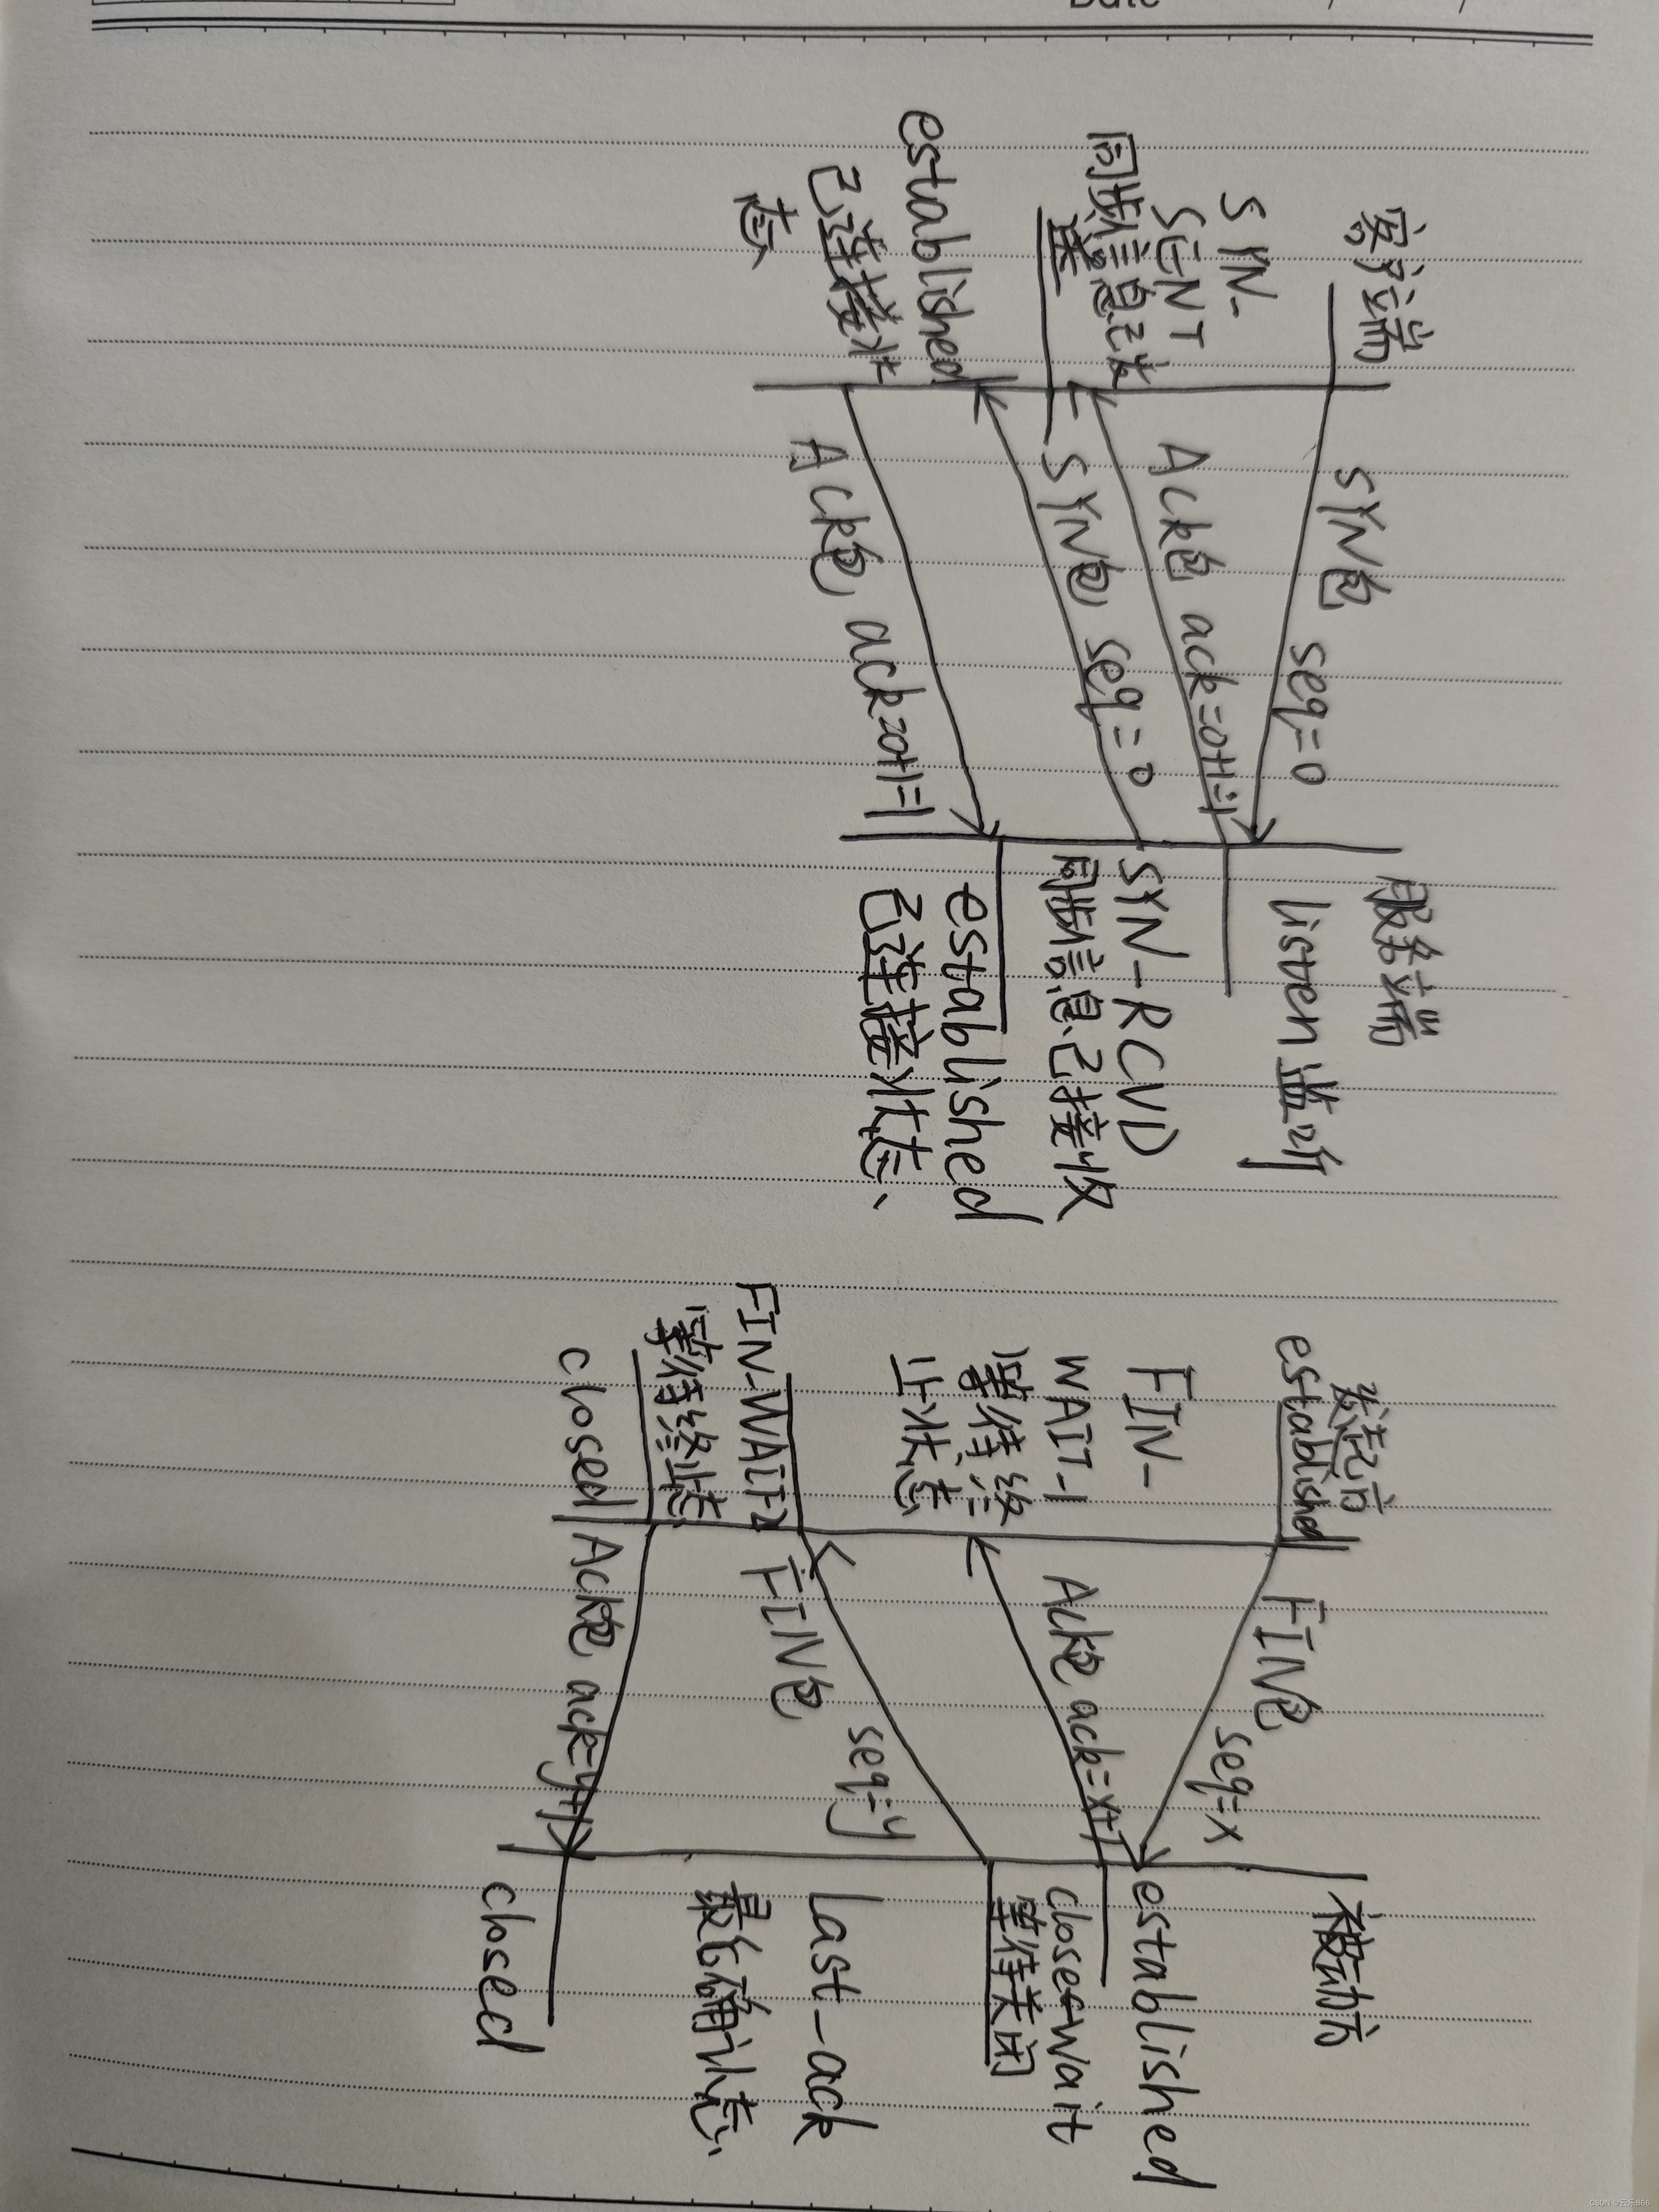 Date / /
客户端
服务端
SYN-
SENT
同步信息已发
送
established
已连接状
态
SYN包 seq=0
Ack包 ack=0+1=1
SYN包 seq=0
Ack包 ack=0+1=1
listen 监听
SYN-RCVD
同步信息已接收
established
已连接状态
发起方
被动方
established
FIN-
WAIT-1
等待终
止状态
FIN-WAIT-2
等待终止态
closed
FIN包 seq=x
Ack包 ack=x+1
FIN包 seq=y
Ack包 ack=y+1
established
close-wait
等待关闭
Last-ack
最后确认态
closed
CSDN @云乐866